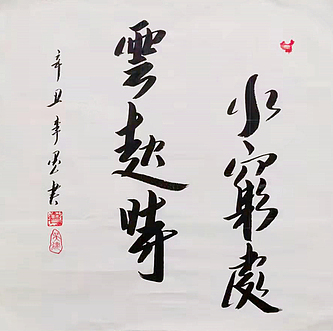 水窮處
雲起時
辛丑年墨书